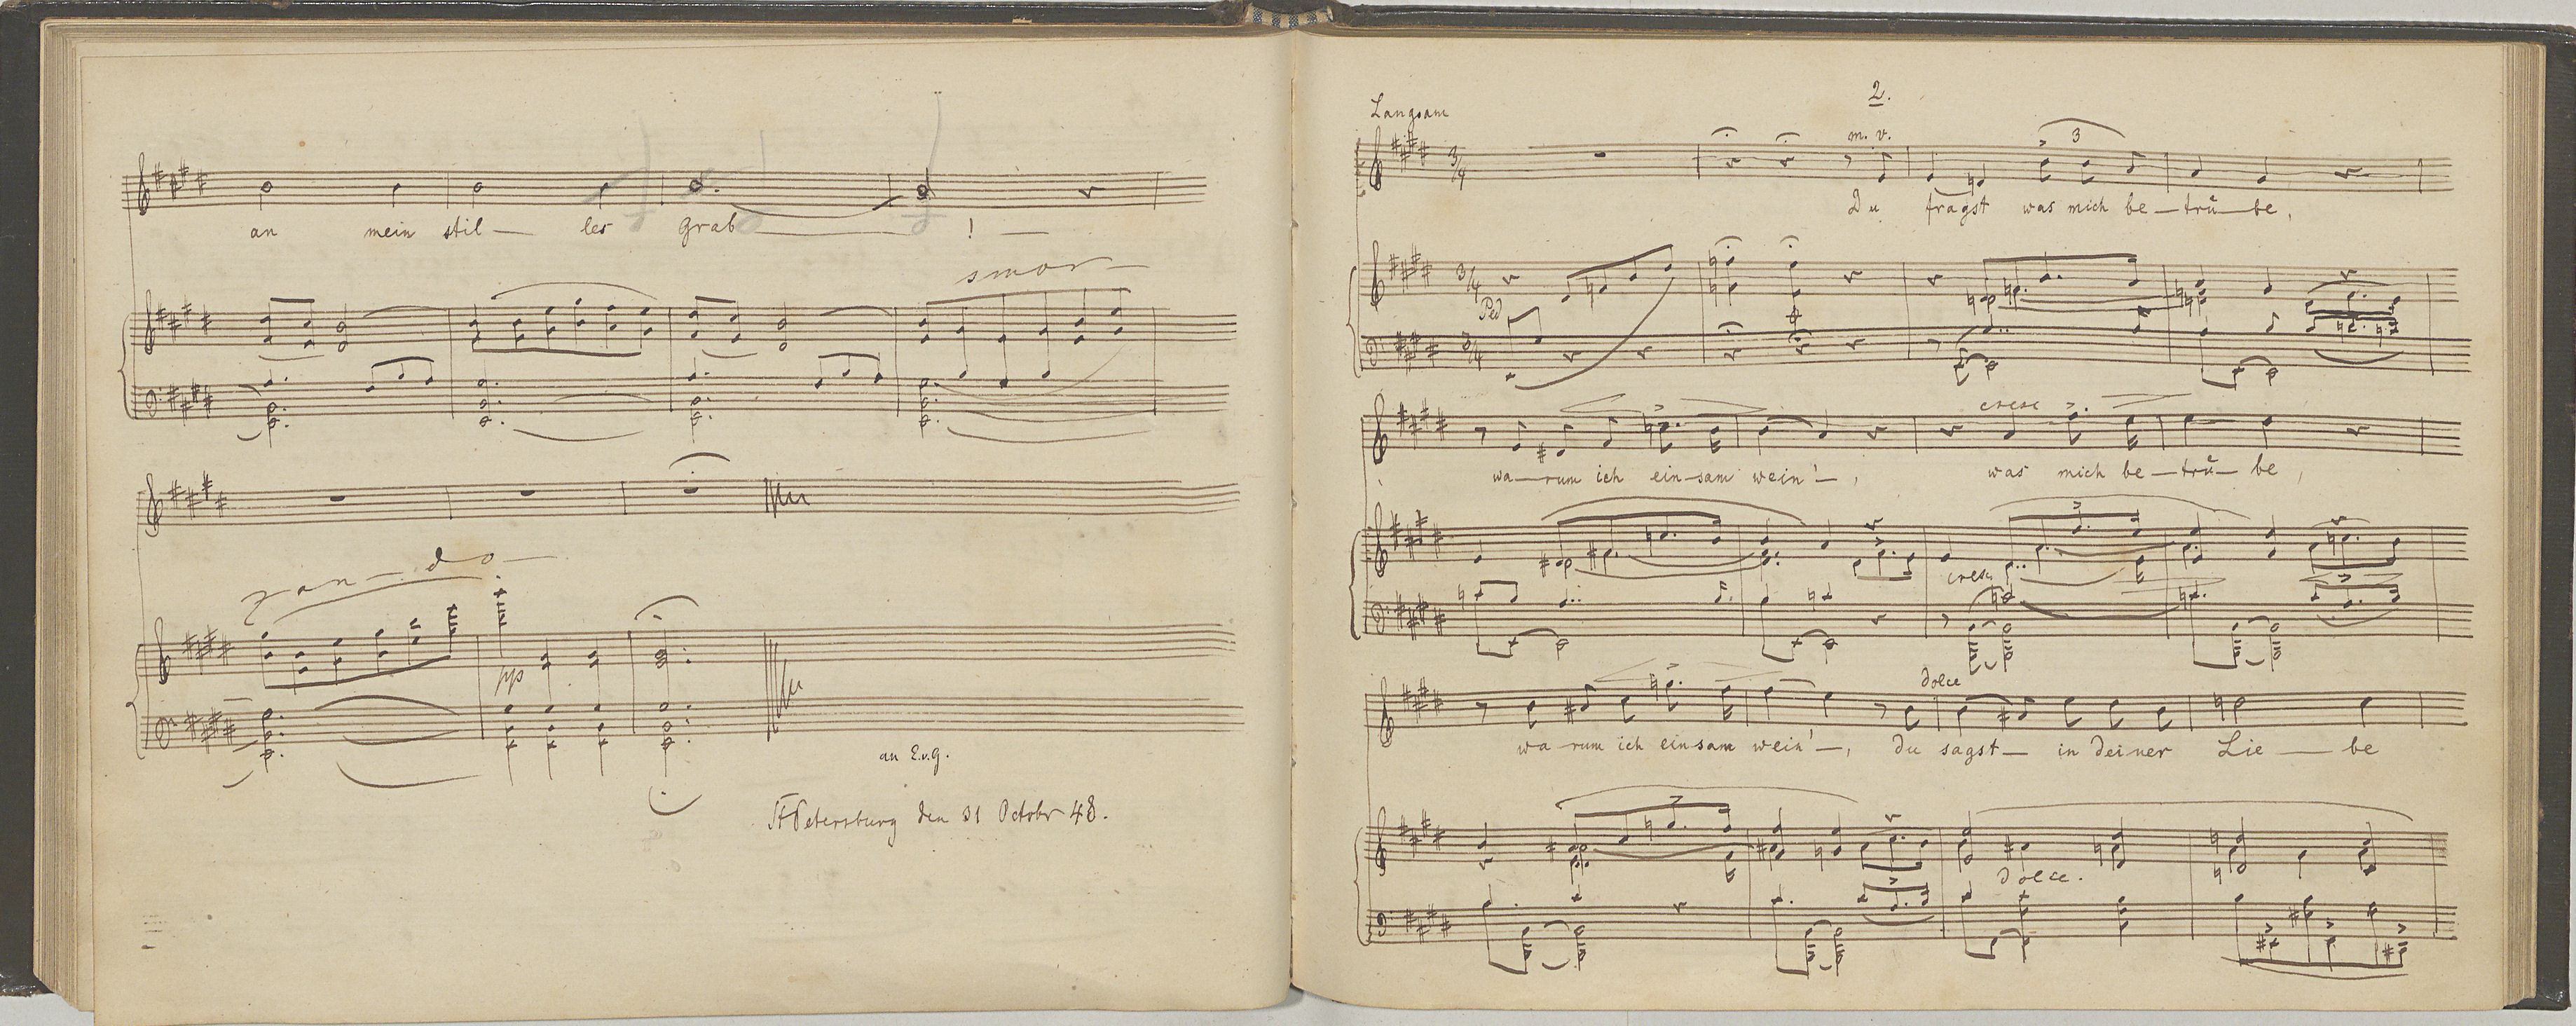 an mein stil — les Grab — ! —
smor —
zan — do —
pp
an E.v.G.
St Petersburg den 31 Octobr 48.
2.
Langsam
m. v.
3
3/4
Du fragst was mich be — trü — be,
3/4
Ped
3/4
cresc
wa — rum ich ein — sam wein' —, was mich be — trü — be,
cresc
dolce
wa rum ich einsam wein' —, du sagst — in deiner Lie — be
dolce.